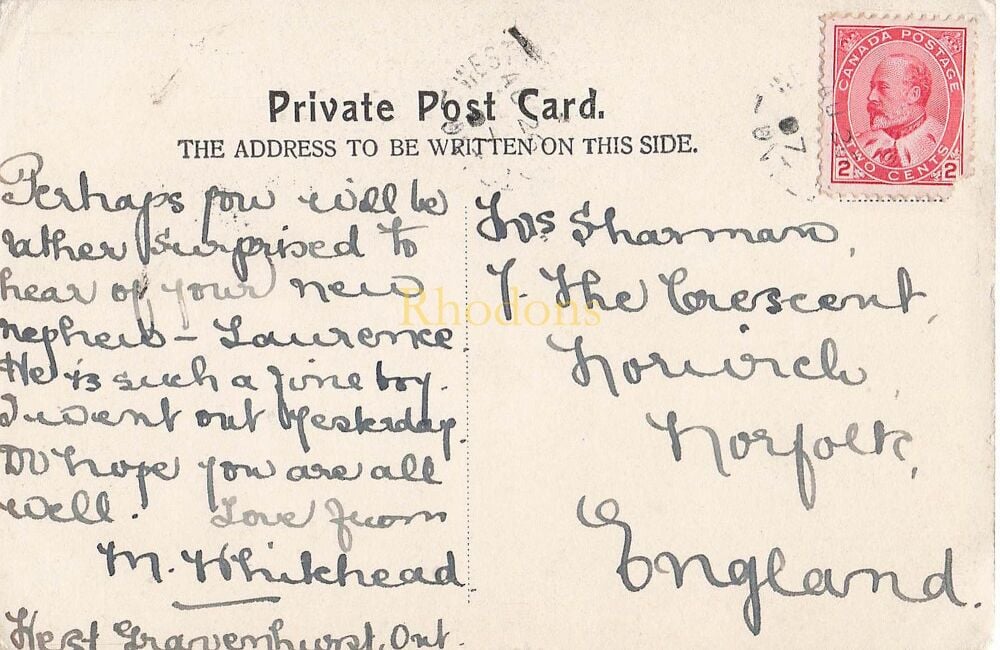 Private Post Card.
THE ADDRESS TO BE WRITTEN ON THIS SIDE.
CANADA POSTAGE
2 TWO CENTS 2
Perhaps you will be
rather surprised to
hear of your new
nephew - Laurence.
He is such a fine boy.
I went out yesterday.
hope you are all
well. Love from
M. Whitehead
West Gravenhurst, Ont.
Mrs Sharman,
7. The Crescent,
Norwich,
Norfolk,
England.
Rhodons